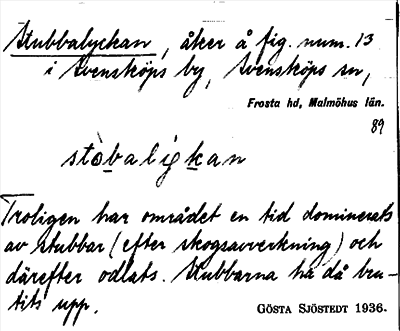 Stubbalyckan, åker å fig. num. 13
i Svensköps by, Svensköps sn,
Frosta hd, Malmöhus län.
89
stòbaligkan
Troligen har området en tid dominerats
av stubbar (efter skogsavverkning) och
därefter odlats. Stubbarna ha då bru-
tits upp.
GÖSTA SJÖSTEDT 1936.